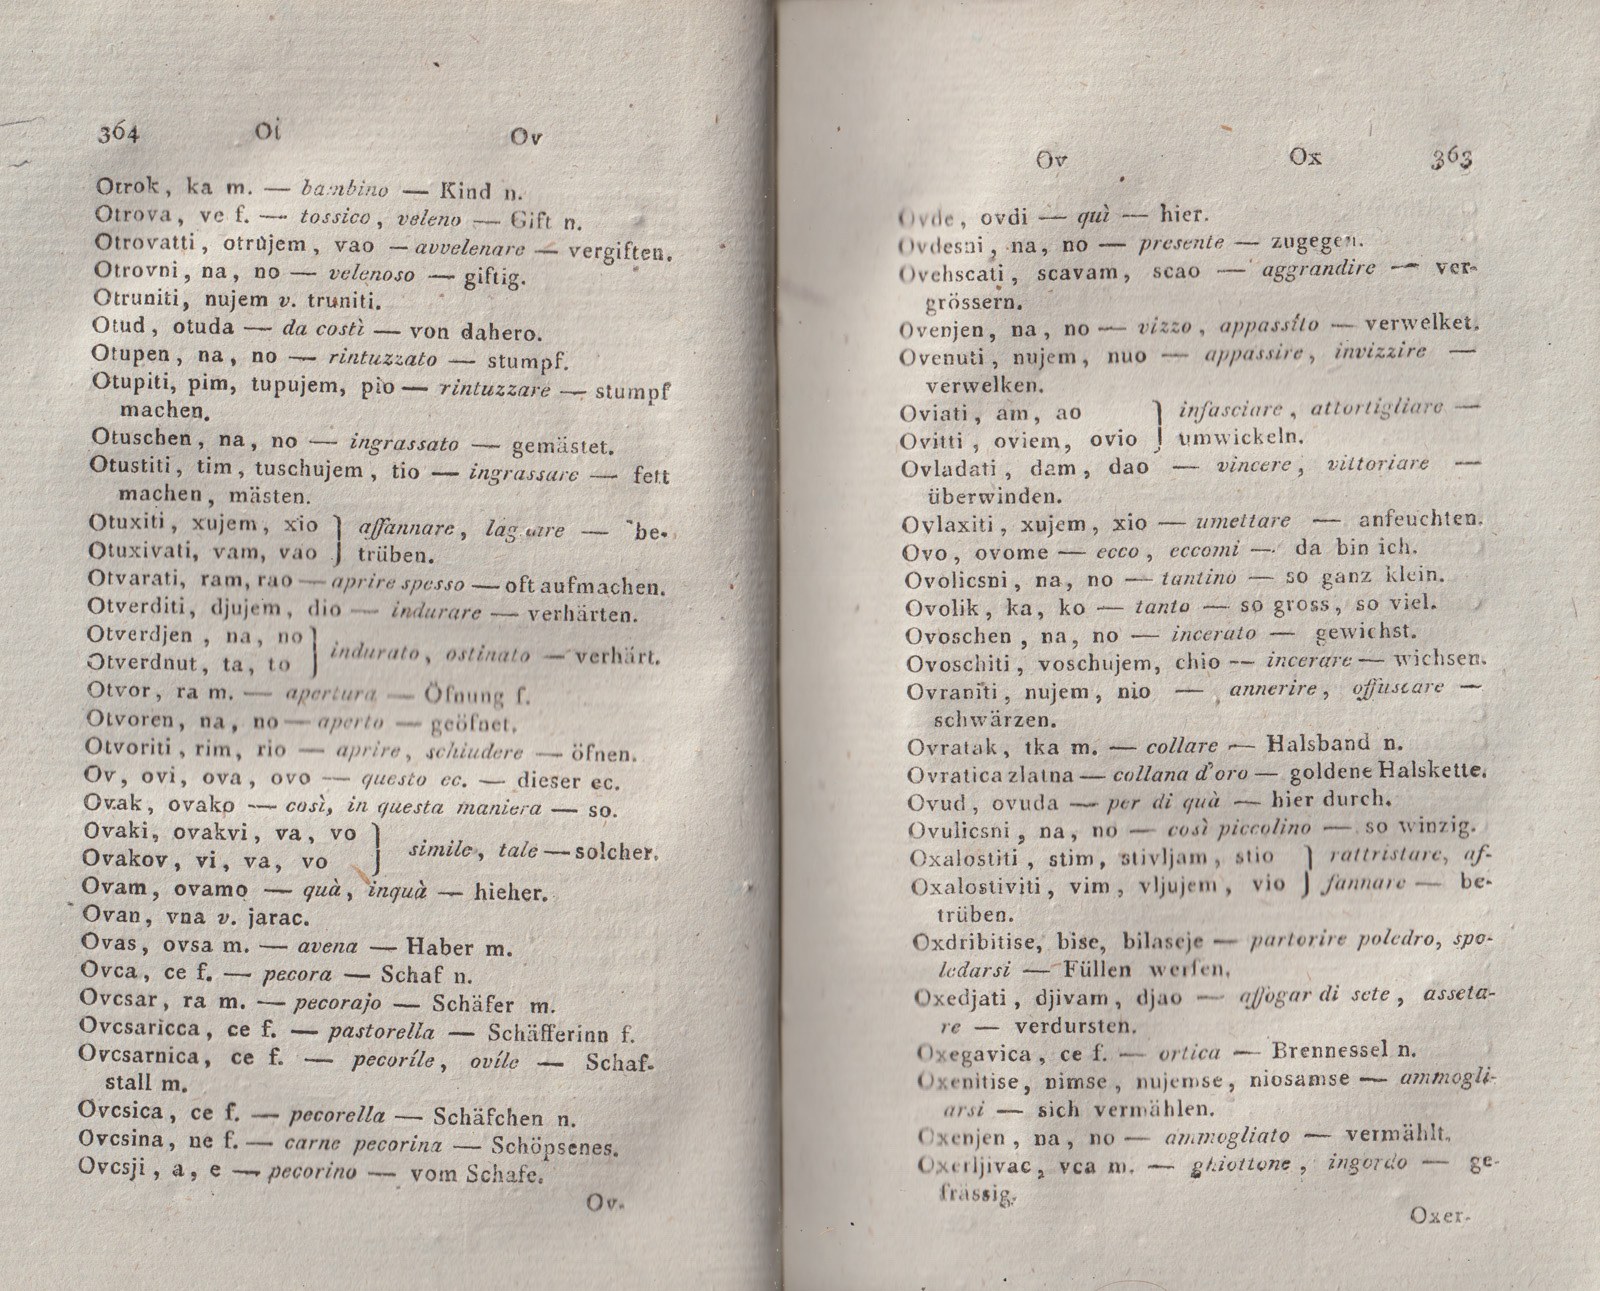 364 Oi Ov
Otrok, ka m. — bambino — Kind n.
Otrova, ve f. — tossico, veleno — Gift n.
Otrovatti, otrùjem, vao — avvelenare — vergiften.
Otrovni, na, no — velenoso — giftig.
Otruniti, nujem v. truniti.
Otud, otuda — da costì — von dahero.
Otupen, na, no — rintuzzato — stumpf.
Otupiti, pim, tupujem, pio — rintuzzare — stumpf
machen.
Otuschen, na, no — ingrassato — gemästet.
Otustiti, tim, tuschujem, tio — ingrassare — fett
machen, mästen.
Otuxiti, xujem, xio } affannare, lagnare — be-
Otuxivati, vam, vao } trüben.
Otvarati, ram, rao — aprire spesso — oft aufmachen.
Otverditi, djujem, dio — indurare — verhärten.
Otverdjen, na, no } indurato, ostinato — verhärt.
Otverdnut, ta, to }
Otvor, ra m. — apertura — Öfnung f.
Otvoren, na, no — aperto — geöfnet.
Otvoriti, rim, rio — aprire, schiudere — öfnen.
Ov, ovi, ova, ovo — questo ec. — dieser ec.
Ovak, ovako — così, in questa maniera — so.
Ovaki, ovakvi, va, vo } simile, tale — solcher.
Ovakov, vi, va, vo }
Ovam, ovamo — quà, inquà — hieher.
Ovan, vna v. jarac.
Ovas, ovsa m. — avena — Haber m.
Ovca, ce f. — pecora — Schaf n.
Ovcsar, ra m. — pecorajo — Schäfer m.
Ovcsaricca, ce f. — pastorella — Schäfferinn f.
Ovcsarnica, ce f. — pecoríle, ovíle — Schaf-
stall m.
Ovcsica, ce f. — pecorella — Schäfchen n.
Ovcsina, ne f. — carne pecorina — Schöpsenes.
Ovcsji, a, e — pecorino — vom Schafe.
Ov-
Ov Ox 363
Ovde, ovdi — quì — hier.
Ovdesni, na, no — presente — zugegen.
Ovehscati, scavam, scao — aggrandire — ver-
grössern.
Ovenjen, na, no — vizzo, appassíto — verwelket.
Ovenuti, nujem, nuo — appassire, invizzire —
verwelken.
Oviati, am, ao } infasciare, attortigliare —
Ovitti, oviem, ovio } umwickeln.
Ovladati, dam, dao — vincere, vittoriare —
überwinden.
Ovlaxiti, xujem, xio — umettare — anfeuchten.
Ovo, ovome — ecco, eccomi — da bin ich.
Ovolicsni, na, no — tantino — so ganz klein.
Ovolik, ka, ko — tanto — so gross, so viel.
Ovoschen, na, no — incerato — gewichst.
Ovoschiti, voschujem, chio — incerare — wichsen.
Ovraniti, nujem, nio — annerire, offuscare —
schwärzen.
Ovratak, tka m. — collare — Halsband n.
Ovratica zlatna — collana d'oro — goldene Halskette.
Ovud, ovuda — per di quà — hier durch.
Ovulicsni, na, no — così piccolino — so winzig.
Oxalostiti, stim, stivljam, stio } rattristare, af-
Oxalostiviti, vim, vljujem, vio } fannare — be-
trüben.
Oxdribitise, bise, bilaseje — partorire poledro, spo-
ledarsi — Füllen werfen.
Oxedjati, djivam, djao — affogar di sete, asseta-
re — verdursten.
Oxegavica, ce f. — ortica — Brennessel n.
Oxenitise, nimse, nujemse, niosamse — ammogli-
arsi — sich vermählen.
Oxenjen, na, no — ammogliato — vermählt.
Oxerljivac, vca m. — ghiottone, ingordo — ge-
frässig.
Oxer-